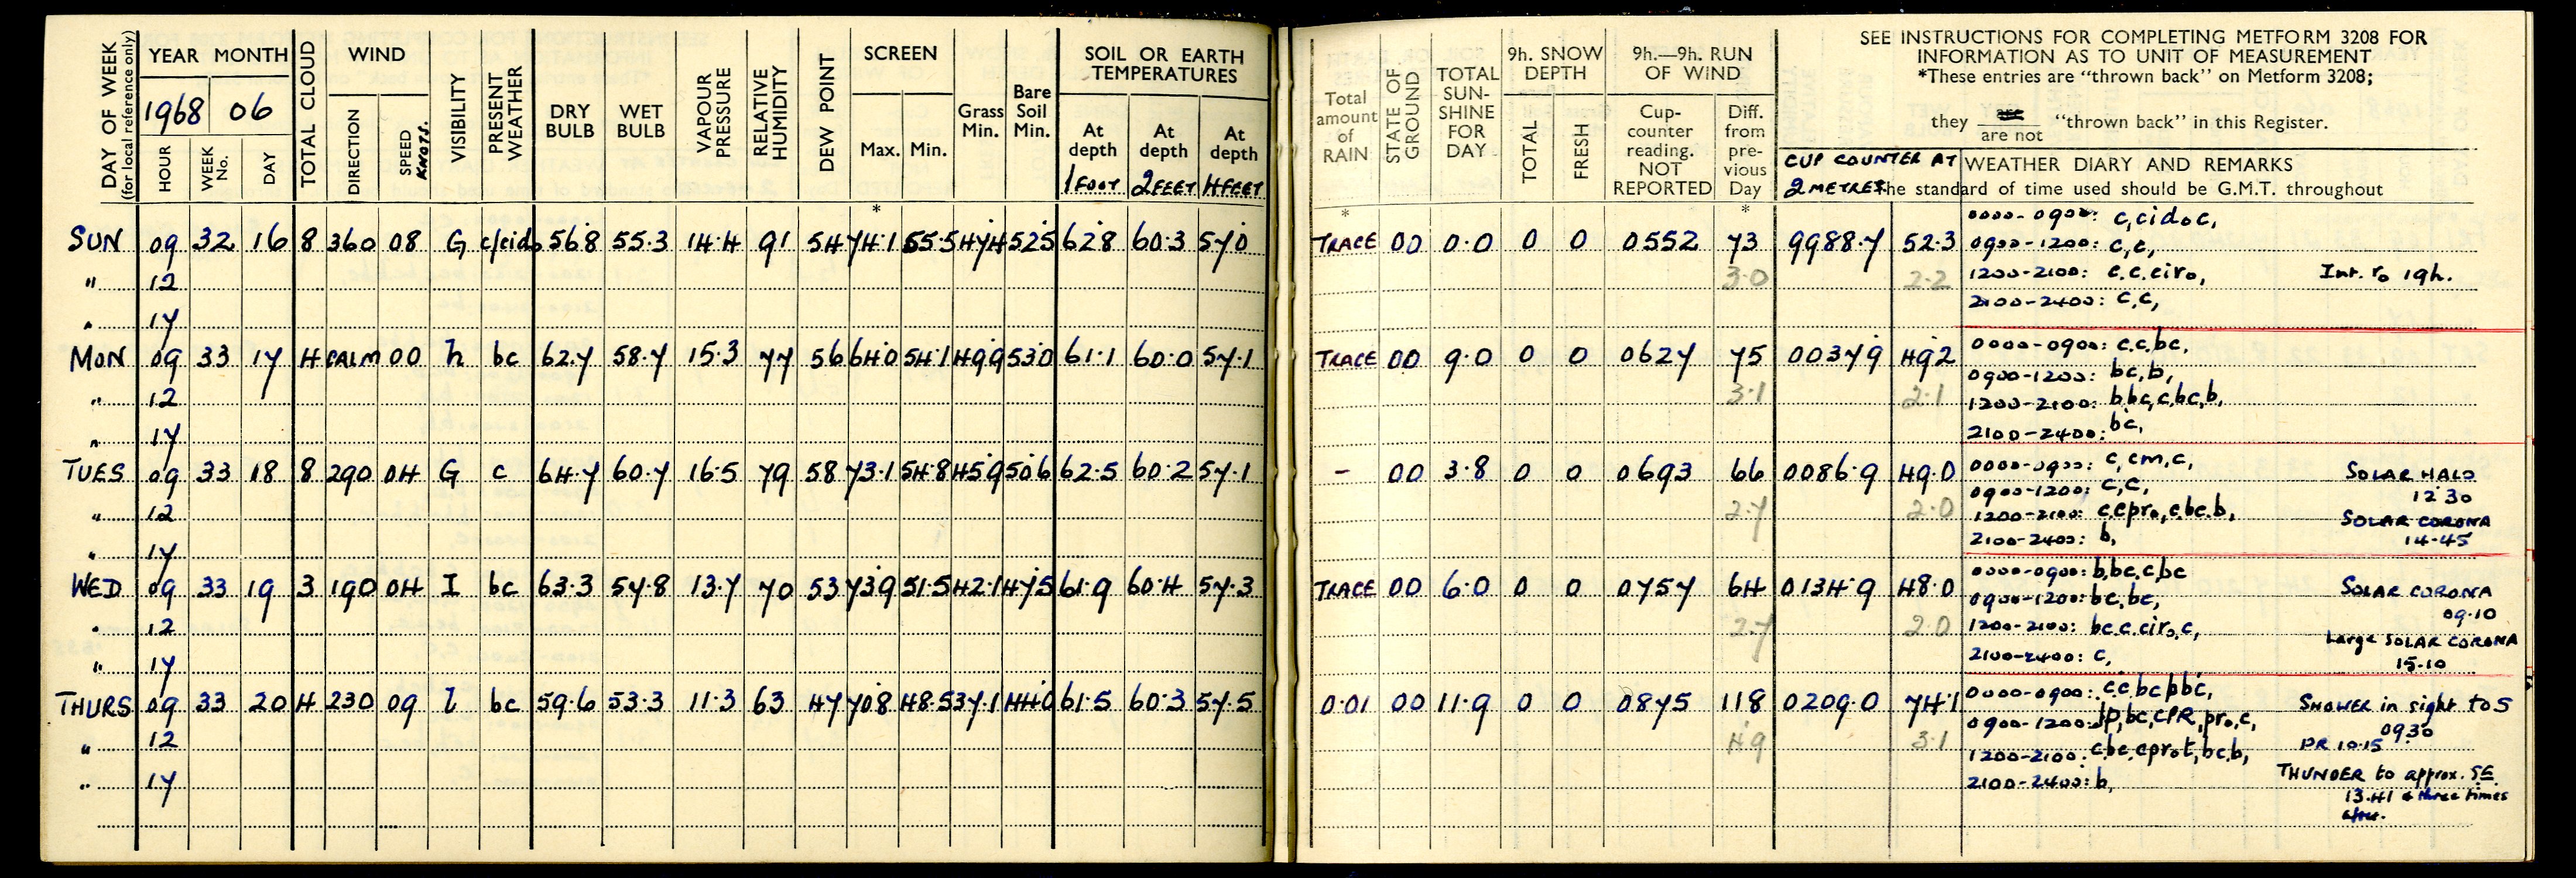 DAY OF WEEK
(for local reference only)
YEAR MONTH
1968 06
HOUR
WEEK No.
DAY
TOTAL CLOUD
WIND
DIRECTION
SPEED KNOTS.
VISIBILITY
PRESENT WEATHER
DRY BULB
WET BULB
VAPOUR PRESSURE
RELATIVE HUMIDITY
DEW POINT
SCREEN
Max. Min.
Grass Min.
Bare Soil Min.
SOIL OR EARTH
TEMPERATURES
At depth 1 FOOT
At depth 2 FEET
At depth 4 FEET
*
SUN 09 32 16 8 360 08 G c/cido 56.8 55.3 14.4 91 54 74.1 55.5 47.4 52.5 62.8 60.3 57.0
" 12
" 17
MON 09 33 17 4 CALM 00 h bc 62.7 58.7 15.3 77 56 64.0 54.1 49.9 53.0 61.1 60.0 57.1
" 12
" 17
TUES 09 33 18 8 290 04 G c 64.7 60.7 16.5 79 58 73.1 54.8 45.9 50.6 62.5 60.2 57.1
" 12
" 17
WED 09 33 19 3 190 04 I bc 63.3 57.8 13.7 70 53 73.9 51.5 42.1 47.5 61.9 60.4 57.3
" 12
" 17
THURS 09 33 20 4 230 09 bc 59.6 53.3 11.3 63 47 70.8 48.5 37.1 44.0 61.5 60.3 57.5
" 12
" 17
Total amount of RAIN
STATE OF GROUND
TOTAL SUN-SHINE FOR DAY
9h. SNOW DEPTH
TOTAL
FRESH
9h.—9h. RUN OF WIND
Cup-counter reading. NOT REPORTED
Diff. from pre-vious Day
SEE INSTRUCTIONS FOR COMPLETING METFORM 3208 FOR
INFORMATION AS TO UNIT OF MEASUREMENT
*These entries are "thrown back" on Metform 3208;
they are / are not "thrown back" in this Register.
CUP COUNTER AT 2 METRES
WEATHER DIARY AND REMARKS
The standard of time used should be G.M.T. throughout
* *
TRACE 00 0.0 0 0 0552 73 9988.7 52.3
3.0 2.2
0000-0900: c,cidoc,
0900-1200: c,c,
1200-2100: c.c.ciro, Int. ro 19h.
2100-2400: c,c,
TRACE 00 9.0 0 0 0627 75 0037.9 49.2
3.1 2.1
0000-0900: c.c.bc,
0900-1200: bc,b,
1200-2100: b,bc,c,bc,b,
2100-2400: bc,
- 00 3.8 0 0 0693 66 0086.9 49.0
2.7 2.0
0000-0900: c,cm,c,
0900-1200: c,c,
1200-2100: c.cpro,c.bc.b,
2100-2400: b,
SOLAR HALO
12 30
SOLAR CORONA
14-45
TRACE 00 6.0 0 0 0757 64 0134.9 48.0
2.7 2.0
0000-0900: b,bc.c,bc
0900-1200: bc,bc,
1200-2100: bc.c.ciro,c,
2100-2400: c,
SOLAR CORONA
09.10
Large SOLAR CORONA
15.10
0.01 00 11.9 0 0 0875 118 0209.0 74.1
4.9 3.1
0000-0900: c.c.bcpbc,
0900-1200: jp,bc,cPR,pro,c,
1200-2100: c.bc.cprot,bc.b,
2100-2400: b,
SHOWER in sight to S
09.30
PR 10.15
THUNDER to approx. SE
13.41 & three times
after.